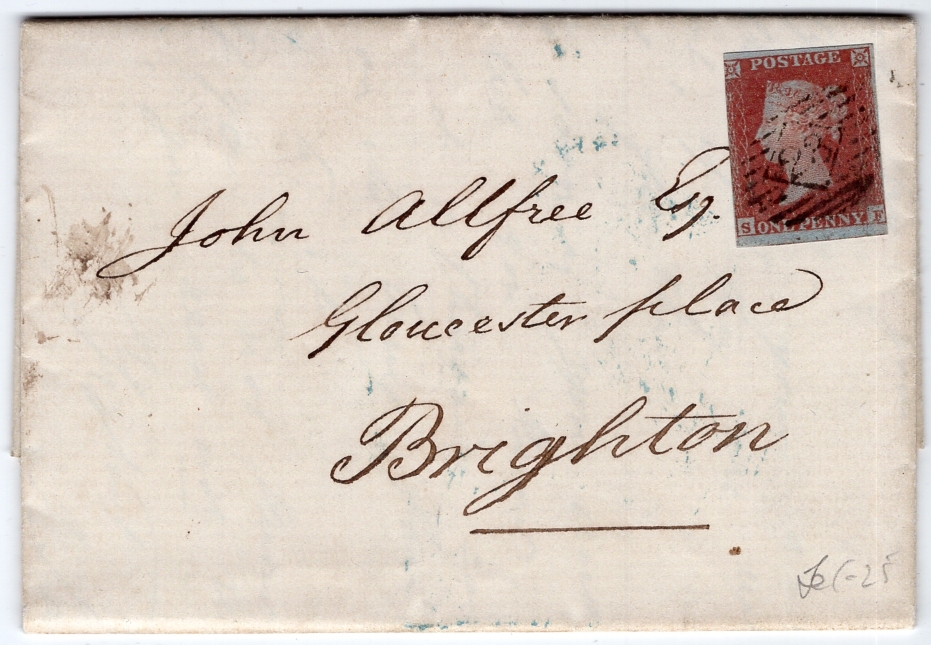 POSTAGE
S ONE PENNY F
John Allfree Esq.
Gloucester place
Brighton